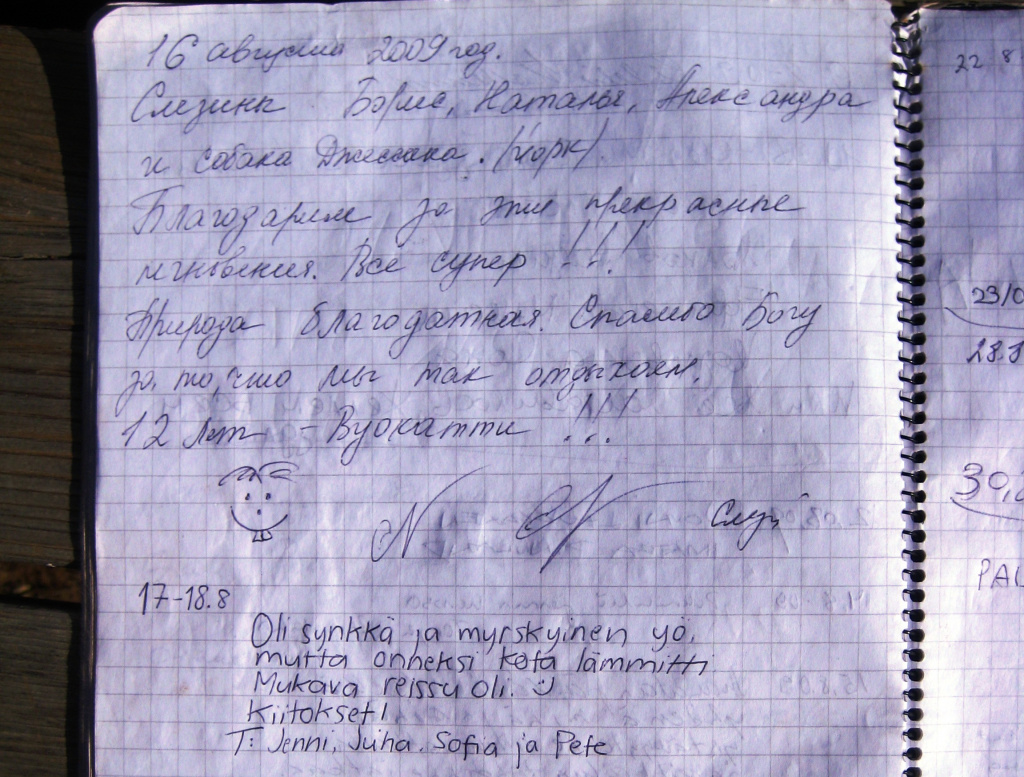 16 августа 2009 год.
Слезинк Борис, Наталья, Александра
и собака Джессика. (йорк)
Благодарим за эти прекрасные
мгновения. Все супер !!!
Природа благодатная. Спасибо Богу
за то, что мы так отдыхаем.
12 лет - Вуокатти !!!
17-18.8
Oli synkkä ja myrskyinen yö,
mutta onneksi kota lämmitti
Mukava reissu oli.
Kiitokset!
T: Jenni, Juha. Sofia ja Pete
22 8
23/0
28.8
30,
PAU